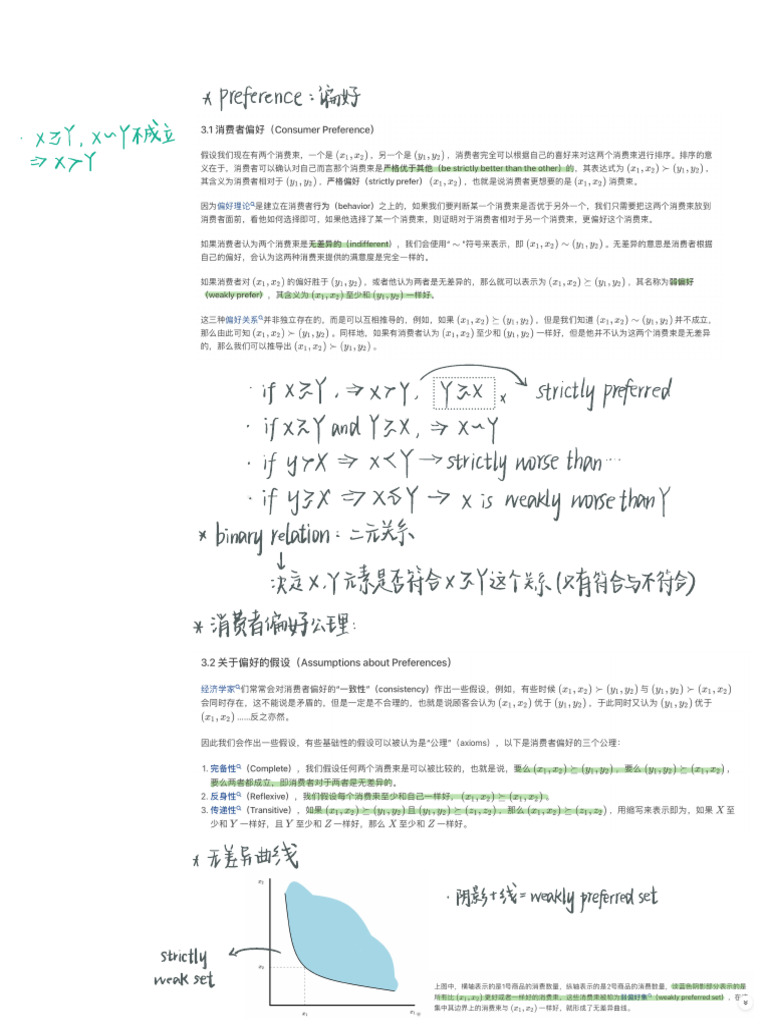 * preference：偏好
· X≽Y, X∼Y不成立
⇒ X≻Y
3.1 消费者偏好（Consumer Preference）
假设我们现在有两个消费束，一个是 (x₁, x₂)，另一个是 (y₁, y₂)，消费者完全可以根据自己的喜好来对这两个消费束进行排序。排序的意
义在于，消费者可以确认对自己而言那个消费束是严格优于其他（be strictly better than the other）的，其表达式为 (x₁, x₂) ≻ (y₁, y₂)，
其含义为消费者相对于 (y₁, y₂)，严格偏好（strictly prefer）(x₁, x₂)，也就是说消费者更想要的是 (x₁, x₂) 消费束。
因为偏好理论是建立在消费者行为（behavior）之上的，如果我们要判断某一个消费束是否优于另外一个，我们只需要把这两个消费束放到
消费者面前，看他如何选择即可，如果他选择了某一个消费束，则证明对于消费者相对于另一个消费束，更偏好这个消费束。
如果消费者认为两个消费束是无差异的（indifferent），我们会使用“ ∼ ”符号来表示，即 (x₁, x₂) ∼ (y₁, y₂)。无差异的意思是消费者根据
自己的偏好，会认为这两种消费束提供的满意度是完全一样的。
如果消费者对 (x₁, x₂) 的偏好胜于 (y₁, y₂)，或者他认为两者是无差异的，那么就可以表示为 (x₁, x₂) ⪰ (y₁, y₂)，其名称为弱偏好
（weakly prefer），其含义为 (x₁, x₂) 至少和 (y₁, y₂) 一样好。
这三种偏好关系并非独立存在的，而是可以互相推导的，例如，如果 (x₁, x₂) ⪰ (y₁, y₂)，但是我们知道 (x₁, x₂) ∼ (y₁, y₂) 并不成立，
那么由此可知 (x₁, x₂) ≻ (y₁, y₂)。同样地，如果有消费者认为 (x₁, x₂) 至少和 (y₁, y₂) 一样好，但是他并不认为这两个消费束是无差异
的，那么我们可以推导出 (x₁, x₂) ≻ (y₁, y₂)。
· if X≽Y, ⇒ X≻Y, Y≽X × strictly preferred
· if X≽Y and Y≽X, ⇒ X∼Y
· if y≻X ⇒ X≺Y → strictly worse than…
· if y≽X ⇒ X≼Y → x is weakly worse than Y
* binary relation：二元关系
↓
：决定X、Y元素是否符合X≽Y这个关系(只有符合与不符合)
* 消费者偏好公理：
3.2 关于偏好的假设（Assumptions about Preferences）
经济学家们常常会对消费者偏好的“一致性”（consistency）作出一些假设，例如，有些时候 (x₁, x₂) ≻ (y₁, y₂) 与 (y₁, y₂) ≻ (x₁, x₂)
会同时存在，这不能说是矛盾的，但是一定是不合理的，也就是说顾客会认为 (x₁, x₂) 优于 (y₁, y₂)，于此同时又认为 (y₁, y₂) 优于
(x₁, x₂) ……反之亦然。
因此我们会作出一些假设，有些基础性的假设可以被认为是“公理”（axioms），以下是消费者偏好的三个公理：
1. 完备性（Complete），我们假设任何两个消费束是可以被比较的，也就是说，要么 (x₁, x₂) ⪰ (y₁, y₂)，要么 (y₁, y₂) ⪰ (x₁, x₂)，
要么两者都成立，即消费者对于两者是无差异的。
2. 反身性（Reflexive），我们假设每个消费束至少和自己一样好，(x₁, x₂) ⪰ (x₁, x₂)。
3. 传递性（Transitive），如果 (x₁, x₂) ⪰ (y₁, y₂) 且 (y₁, y₂) ⪰ (z₁, z₂)，那么 (x₁, x₂) ⪰ (z₁, z₂)，用缩写来表示即为，如果 X 至
少和 Y 一样好，且 Y 至少和 Z 一样好，那么 X 至少和 Z 一样好。
* 无差异曲线
x₂
· 阴影+线=weakly preferred set
strictly
weak set
x₂
x₁
x₁
上图中，横轴表示的是1号商品的消费数量，纵轴表示的是2号商品的消费数量，淡蓝色阴影部分表示的是
所有比 (x₁, x₂) 更好或者一样好的消费束，这些消费束被称为弱偏好集（weakly preferred set），在
集中其边界上的消费束与 (x₁, x₂) 一样好，就形成了无差异曲线。